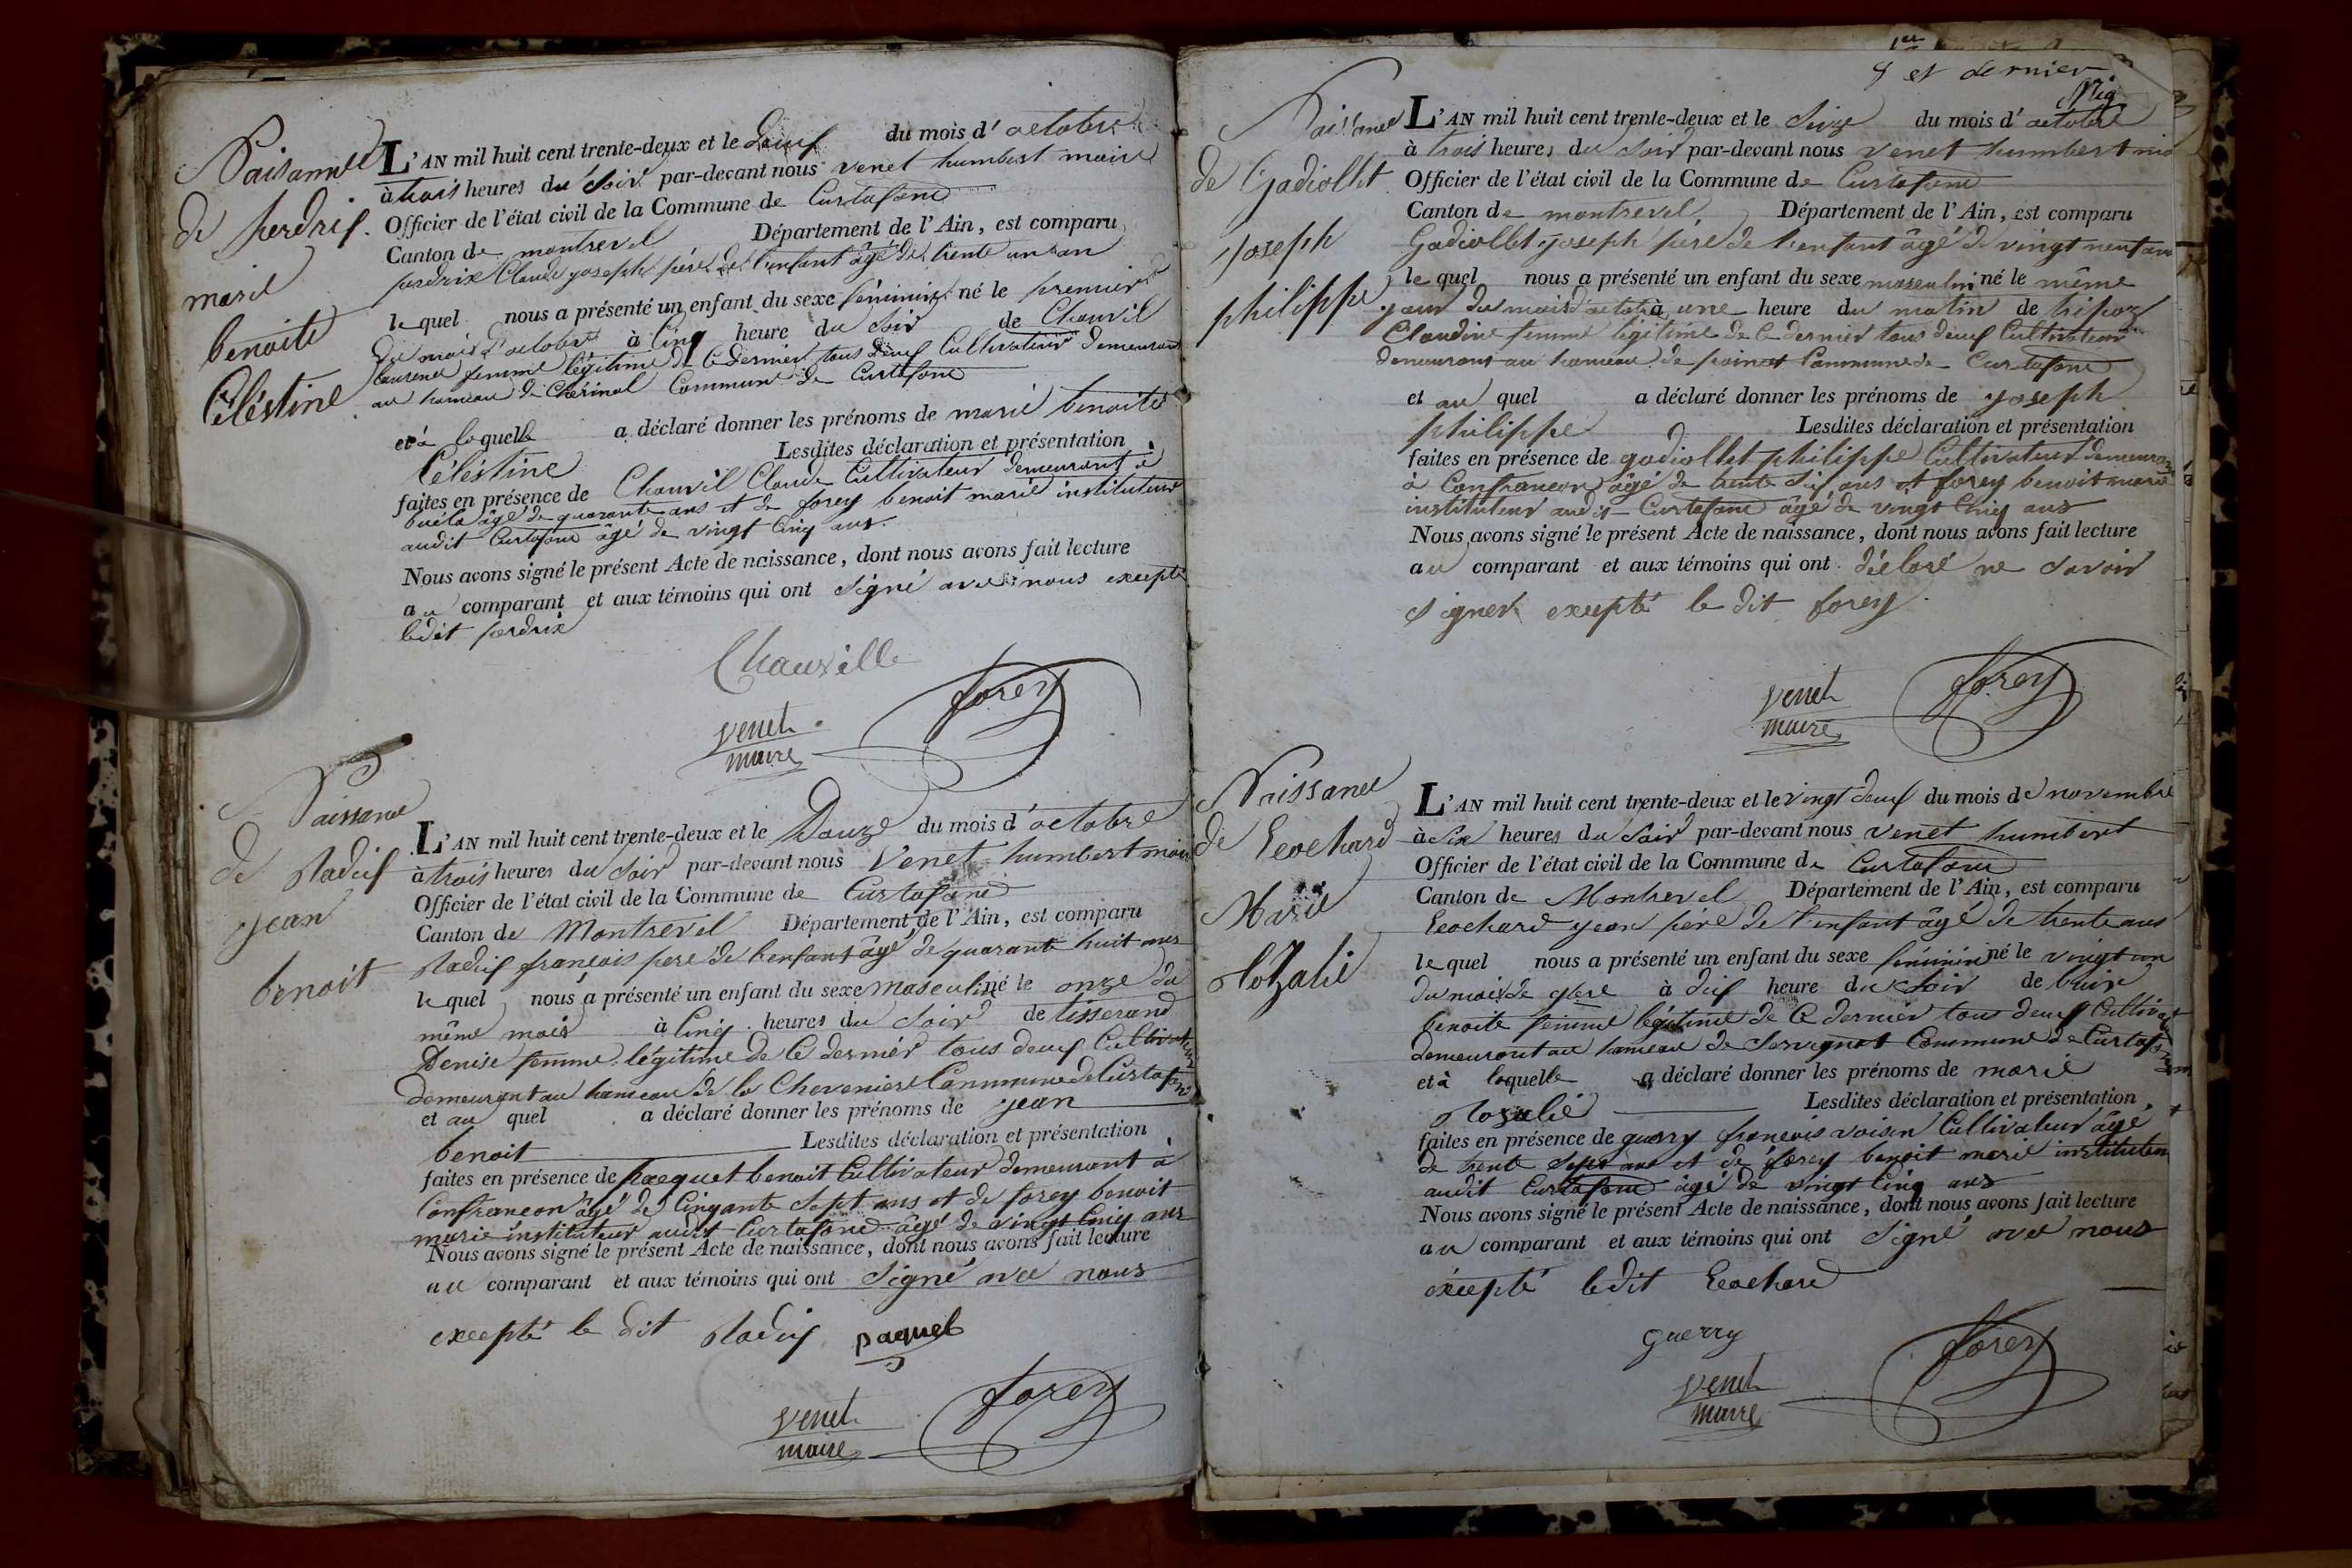 Naissance
de perdrix
marie
benoite
Céléstine
L'AN mil huit cent trente-deux et le deux du mois d'octobre
à trois heures du soir par-devant nous venet humbert maire
Officier de l'état civil de la Commune de Curtafond
Canton de montrevel Département de l'Ain, est comparu
perdrix Claude joseph père de l'enfant âgé de trente un an
lequel nous a présenté un enfant du sexe féminin né le premier
du mois d'octobre à cinq heure du soir de Chauvil
laurence femme légitime de ce dernier tous deux Cultivateur demeurant
au hameau de Chérinal Commune de Curtafond
et à laquelle a déclaré donner les prénoms de marie benoite
Céléstine Lesdites déclaration et présentation
faites en présence de Chauvil Claude Cultivateur demeurant à
buéla âgé de quarante ans et de forey benoit marie instituteur
audit Curtafond âgé de vingt Cinq ans.
Nous avons signé le présent Acte de naissance, dont nous avons fait lecture
au comparant et aux témoins qui ont signé avec nous excepté
ledit perdrix
Chauville
venet
maire
forey
Naissance
de Radix
jean
benoit
L'AN mil huit cent trente-deux et le Douze du mois d'octobre
à trois heures du soir par-devant nous Venet humbert maire
Officier de l'état civil de la Commune de Curtafond
Canton de Montrevel Département de l'Ain, est comparu
Radix francois pere de l'enfant âgé de quarante huit ans
lequel nous a présenté un enfant du sexe masculin né le onze du
même mois à Cinq heures du soir de tisserand
Denise femme légitime de Ce dernier tous deux Cultivateur
demeurant au hameau de la Cheveniere Commune de Curtafond
et au quel a déclaré donner les prénoms de jean
benoit Lesdites déclaration et présentation
faites en présence de pacquet benoit Cultivateur demeurant à
Confrancon âgé de Cinquante Sept ans et de forey benoit
marie instituteur audit Curtafond âgé de vingt Cinq ans
Nous avons signé le présent Acte de naissance, dont nous avons fait lecture
au comparant et aux témoins qui ont signé avec nous
excepté le dit Radix paquet
venet
maire
forey
5 et dernier
Naissance
de Gadiollet
joseph
philippe
L'AN mil huit cent trente-deux et le Seize du mois d'octobre
à trois heures du soir par-devant nous venet humbert
Officier de l'état civil de la Commune de Curtafond
Canton de montrevel, Département de l'Ain, est comparu
Gadiollet joseph père de l'enfant âgé de vingt neuf ans
le quel nous a présenté un enfant du sexe masculin né le même
jour du mois d'octobre à une heure du matin de tripoz
Claudine femme légitime de Ce dernier tous deux Cultivateur
demeurant au hameau de poinat Commune de Curtafond
et au quel a déclaré donner les prénoms de joseph
philippe Lesdites déclaration et présentation
faites en présence de gadiollet philippe Cultivateur demeurant
à Confrancon âgé de trente Six ans et forey benoit marie
instituteur audit Curtafond âgé de vingt Cinq ans
Nous avons signé le présent Acte de naissance, dont nous avons fait lecture
au comparant et aux témoins qui ont déclaré ne savoir
signer excepté le dit forey.
venet
maire
forey
Naissance
de Ecochard
Marie
Rozalie
L'AN mil huit cent trente-deux et le vingt deux du mois de novembre
à Six heures du soir par-devant nous venet humbert
Officier de l'état civil de la Commune de Curtafond
Canton de Montrevel Département de l'Ain, est comparu
Ecochard jean père de l'enfant âgé de trente ans
lequel nous a présenté un enfant du sexe feminin né le vingt un
du mois de 9bre à dix heure du soir de
benoite femme légitime de Ce dernier tous deux Cultivateur
demeurant au hameau de Servignat Commune de Curtafond
et à laquelle a déclaré donner les prénoms de marie
Rozalie Lesdites déclaration et présentation
faites en présence de guerry francois voisin Cultivateur âgé
de trente Sept ans et de forey benoit marie instituteur
audit Curtafond âgé de vingt Cinq ans
Nous avons signé le présent Acte de naissance, dont nous avons fait lecture
au comparant et aux témoins qui ont signé avec nous
excepté ledit Ecochard
guerry
venet
maire
forey